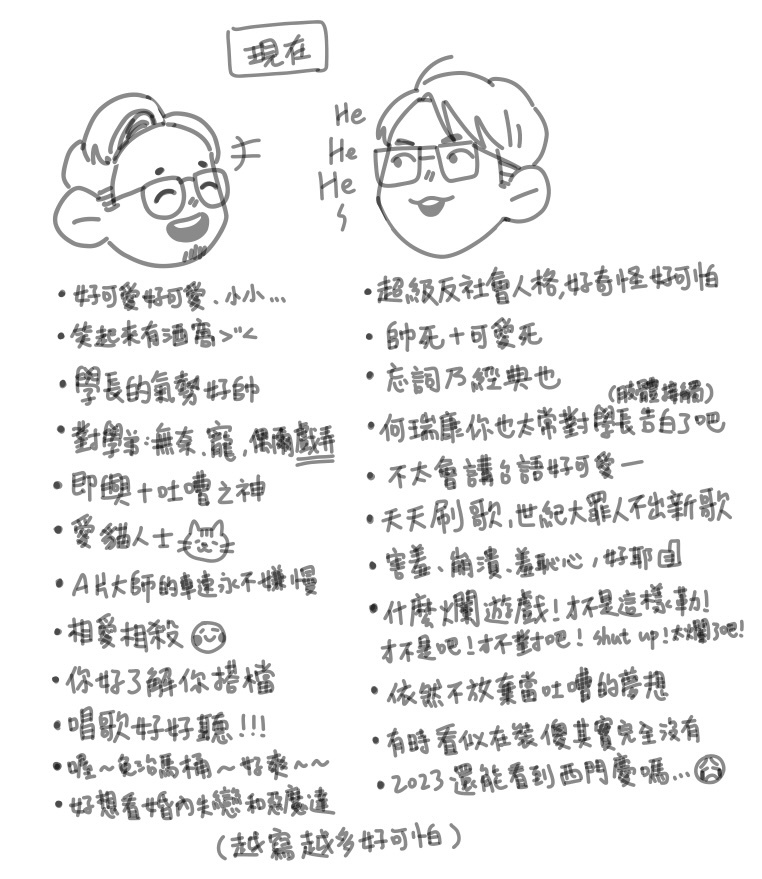 現在
He
He
He
・好可愛好可愛、小小...
・笑起來有酒窩>"<
・學長的氣勢好帥
・對學弟:無奈、寵,偶爾戲弄
・即興+吐嘈之神
・愛貓人士
・A片大師的車速永不嫌慢
・相愛相殺
・你好了解你搭檔
・唱歌好好聽!!!
・喔~免治馬桶~好爽~~
・好想看婚內失戀和惡魔達
・超級反社會人格,好奇怪好可怕
・帥死+可愛死
・忘詞乃經典也
(肢體接觸)
・何瑞康你也太常對學長告白了吧
・不太會講台語好可愛一
・天天刷歌,世紀大罪人不出新歌
・害羞、崩潰、羞恥心,好耶
・什麼爛遊戲!才不是這樣勒!
才不是吧!才不對吧! shut up!太爛了吧!
・依然不放棄當吐嘈的夢想
・有時看似在裝傻其實完全沒有
・2023還能看到西門慶嗎...
(越寫越多好可怕)